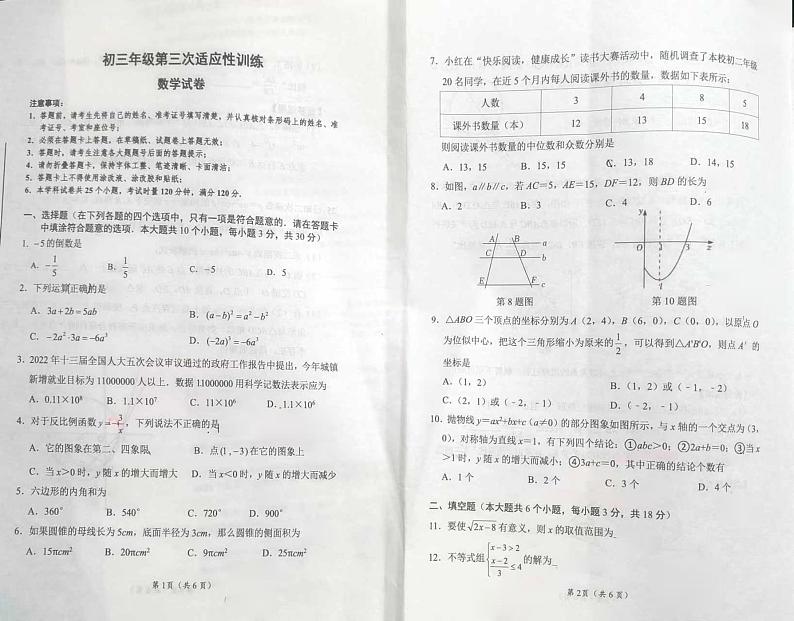 初三年级第三次适应性训练
数学试卷
注意事项：
1．答题前，请考生先将自己的姓名、准考证号填写清楚，并认真核对条形码上的姓名、准
考证号、考室和座位号；
2．必须在答题卡上答题，在草稿纸、试题卷上答题无效；
3．答题时，请考生注意各大题题号后面的答题提示；
4．请勿折叠答题卡，保持字体工整、笔迹清晰、卡面清洁；
5．答题卡上不得使用涂改液、涂改胶和贴纸；
6．本学科试卷共25个小题，考试时量120分钟，满分120分．
一、选择题（在下列各题的四个选项中，只有一项是符合题意的．请在答题卡
中填涂符合题意的选项．本大题共10个小题，每小题3分，共30分）
1. －5的倒数是
A．-1/5 B．1/5 C．－5 D．5
2．下列运算正确的是
A．3a+2b=5ab B．(a-b)²=a²-b²
C．-2a²·3a=-6a³ D．(-2a)³=-6a³
3．2022年十三届全国人大五次会议审议通过的政府工作报告中提出，今年城镇
新增就业目标为11000000人以上．数据11000000用科学记数法表示应为
A．0.11×10⁸ B．1.1×10⁷ C．11×10⁶ D．1.1×10⁶
4．对于反比例函数y=-3/x，下列说法不正确的是
A．它的图象在第二、四象限 B．点(1,-3)在它的图象上
C．当x＞0时，y随x的增大而增大 D．当x＜0时，y随x的增大而减少
5．六边形的内角和为
A．360° B．540° C．720° D．900°
6．如果圆锥的母线长为5cm，底面半径为3cm，那么圆锥的侧面积为
A．15πcm² B．20πcm² C．9πcm² D．25πcm²
第1页（共6页）
7．小红在“快乐阅读，健康成长”读书大赛活动中，随机调查了本校初二年级
20名同学，在近5个月内每人阅读课外书的数量，数据如下表所示：
人数 3 4 8 5
课外书数量（本） 12 13 15 18
则阅读课外书数量的中位数和众数分别是
A．13，15 B．15，15 C．13，18 D．14，15
8．如图，a∥b∥c，若AC=5，AE=15，DF=12，则BD的长为
A．2 B．3 C．4 D．6
A B a
C D b
E F c
y
O 1 3 x
第8题图 第10题图
9．△ABO三个顶点的坐标分别为A（2，4），B（6，0），C（0，0），以原点O
为位似中心，把这个三角形缩小为原来的1/2，可以得到△A'B'O，则点A'的
坐标是
A．（1，2） B．（1，2）或（－1，－2）
C．（2，1）或（－2，－1） D．（－2，－1）
10．抛物线y=ax²+bx+c（a≠0）的部分图象如图所示，与x轴的一个交点为（3，
0），对称轴为直线x=1，有下列四个结论：①abc＞0；②2a+b=0；③当x
＞1时，y随x的增大而减小；④3a+c=0，其中正确的结论个数有
A．1个 B．2个 C．3个 D．4个
二、填空题（本大题共6个小题，每小题3分，共18分）
11．要使√2x－8有意义，则x的取值范围为
12．不等式组{x-3>2 x-2/3≤4的解为
第2页（共6页）